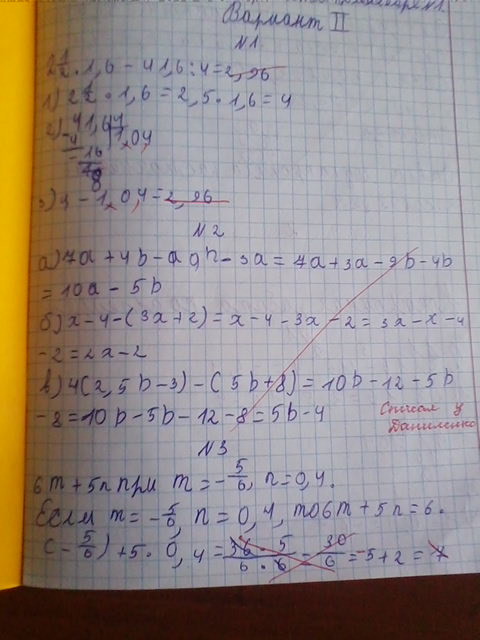 Вариант II
N1
2 1/2 · 1,6 - 41,6 : 4 = 2,96
1) 2 1/2 · 1,6 = 2,5 · 1,6 = 4
2) 41,6 4
- 4 1,04
- 16
16
3) 4 - 1,0,4 = 2,96
N2
а) 7a + 4b - - 3a = 7a + 3a - 9b - 4b
= 10a - 5b
б) x - 4 - (3x + 2) = x - 4 - 3x - 2 = 3x - x - 4
- 2 = 2x - 2
в) 4(2,5b - 3) - (5b + 8) = 10b - 12 - 5b
- 8 = 10b - 5b - 12 - 8 = 5b - 4
Списал у
Даниленко
N3
6m + 5n при m = - 5/6, n = 0,4.
Если m = - 5/6, n = 0,4, то 6m + 5n = 6·
(- 5/6) + 5 · 0,4 = 36 · 5 / 6 · 6 - 30/6 = - 5 + 2 = 7